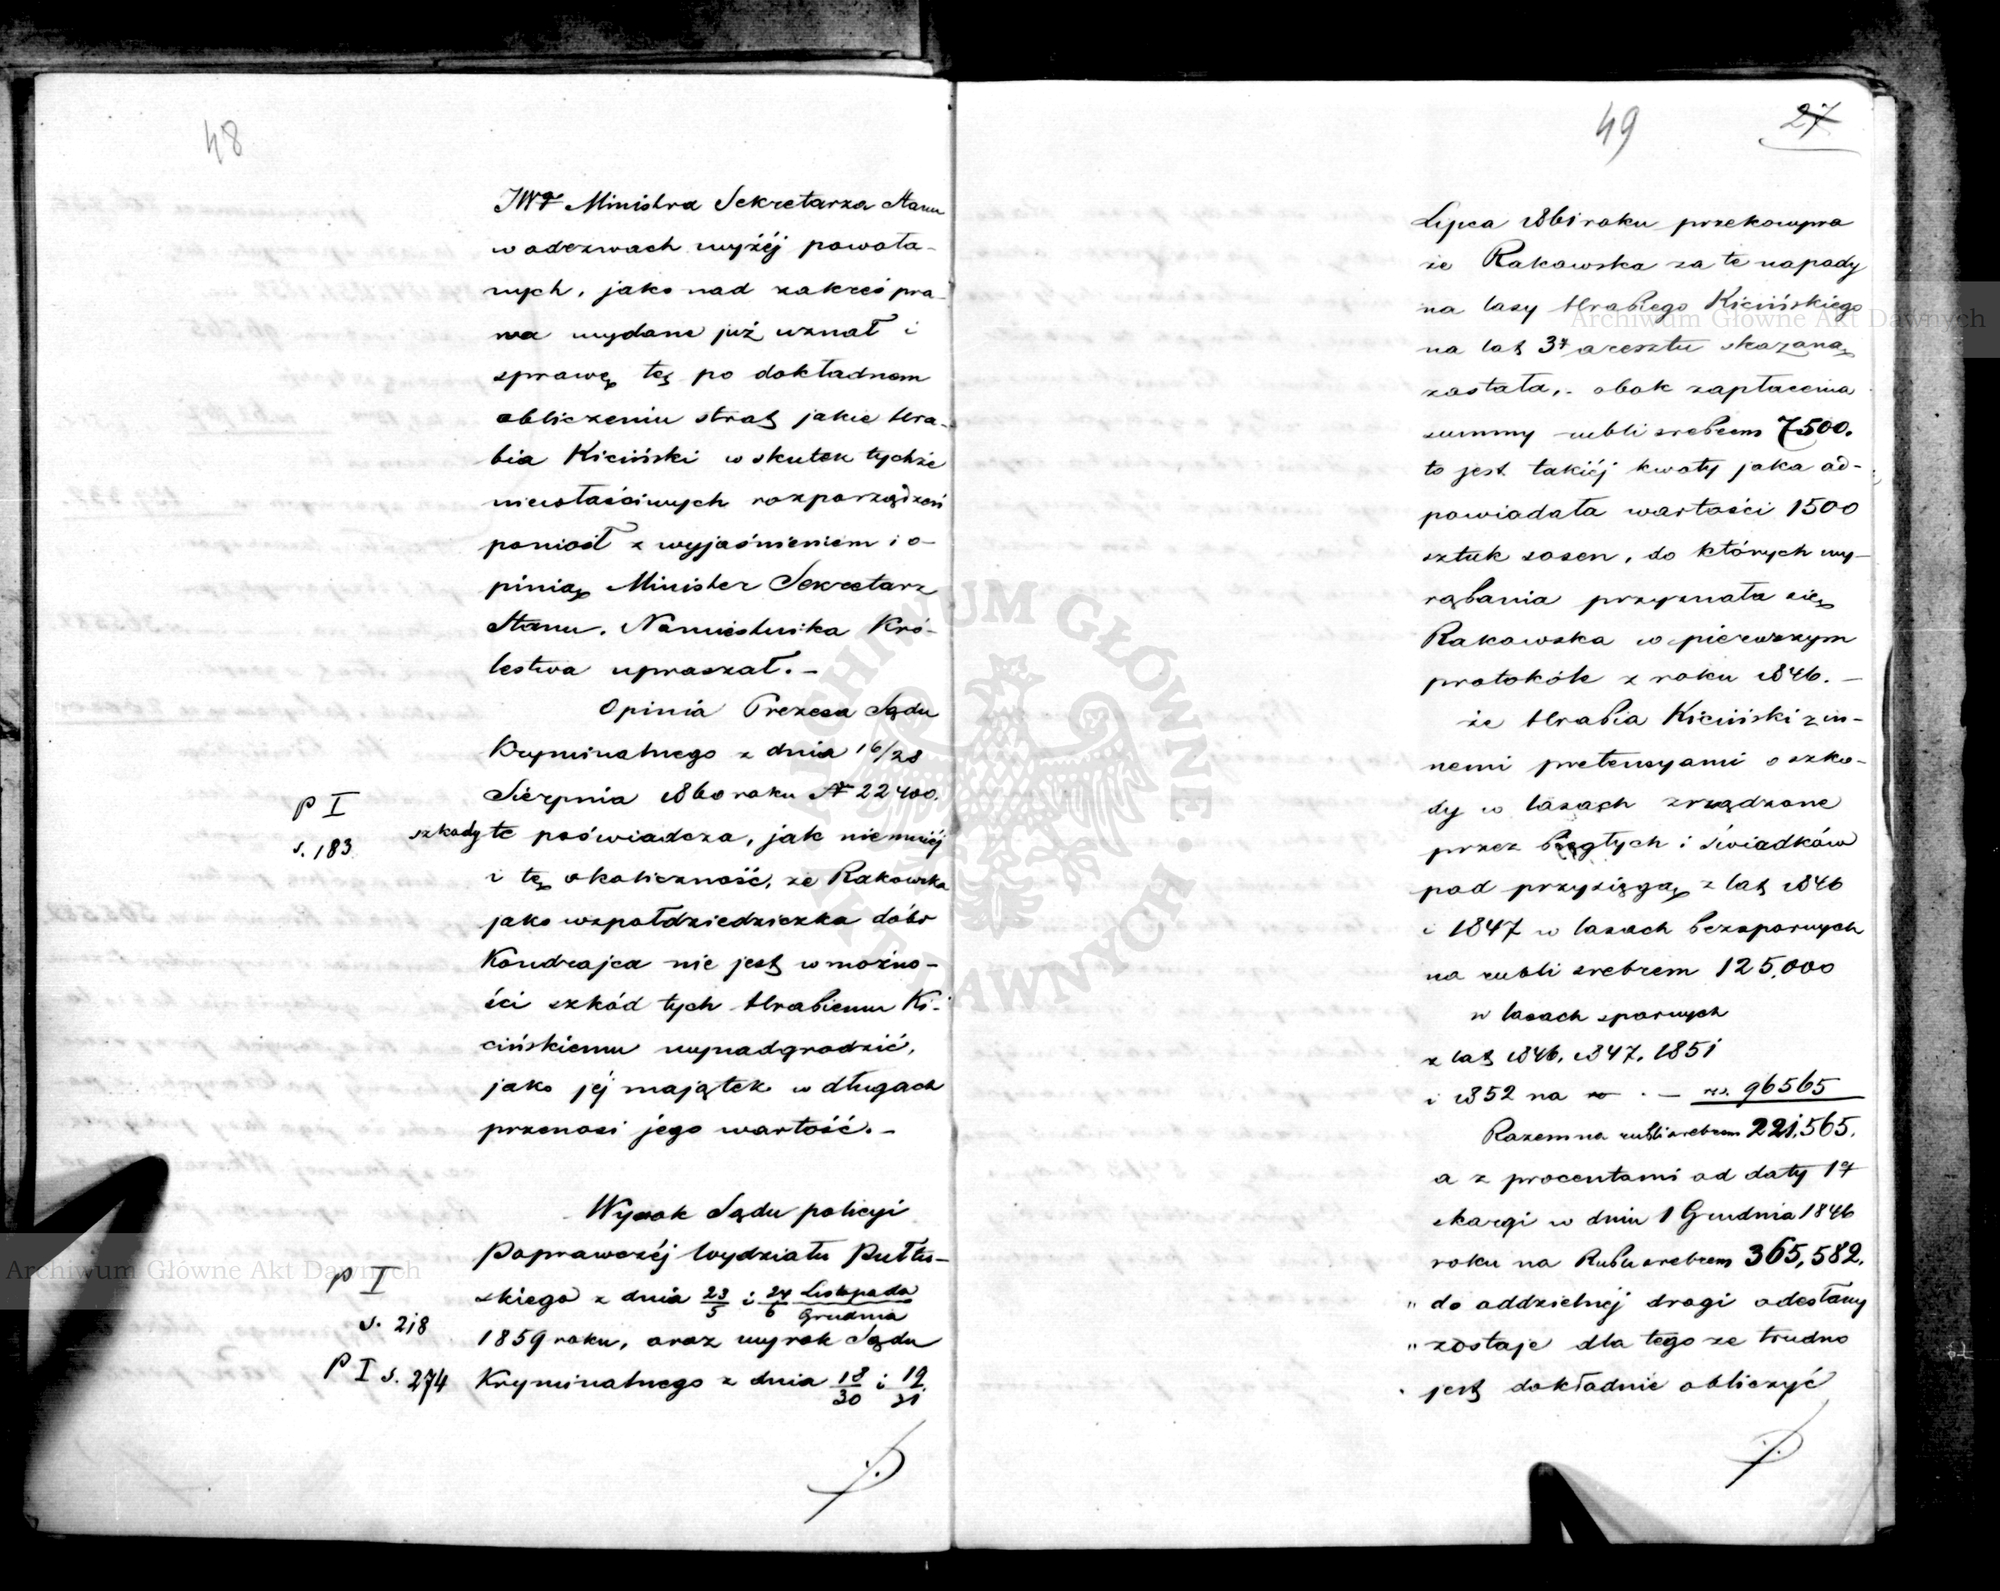 48
JWº Ministra Sekretarza Stanu
w odezwach wyżéj powoła-
nych, jako nad zakres pra-
wa wydane już uznał i
sprawę tę po dokładnem
obliczeniu strat jakie Hra-
bia Kiciński w skutek tychże
niewłaściwych rozporządzeń
poniósł z wyjaśnieniem i o-
pinią Minister Sekretarz
Stanu, Namiestnika Kró-
lestwa upraszał. –
Opinia Prezesa Sądu
Kryminalnego z dnia 16/28
Sierpnia 1860 roku Nº 22400.
P I
s. 183
szkody te poświadcza, jak niemniéj
i tę okoliczność, że Rakowska
jako wspołdziedziczka dóbr
Kondrajca nie jest w możno-
ści szkód tych Hrabiemu Ki-
cińskiemu wynadgrodzić,
jako jéj majątek w długach
przenosi jego wartość. –
Wyrok Sądu policyi
Poprawczéj Wydziału Pułtu-
P I
s. 218
skiego z dnia 23/5 i 24/6 Listopada/Grudnia
1859 roku, oraz wyrok Sądu
P I s. 274
Kryminalnego z dnia 18/30 i 19/31
49
27
Lipca 1861 roku przekonywa
że Rakowska za te napady
na lasy Hrabiego Kicińskiego
na lat 3 aresztu skazaną
została, obok zapłacenia
summy rubli srebrem 7500.
to jest takiéj kwoty jaka od-
powiadała wartości 1500
sztuk sosen, do których wy-
rąbania przyznała się
Rakowska w pierwszym
protokóle z roku 1846. –
że Hrabia Kiciński z in-
nemi pretensyami o szko-
dy w lasach zrządzone
przez biegłych i świadków
pod przysięgą z lat 1846
i 1847 w lasach bezspornych
na rubli srebrem 125,000
w lasach spornych
z lat 1846, 1847, 1851
i 1852 na . – rs. 96565
Razem na rubli srebrem 221,565.
a z procentami od daty 1º
skargi w dniu 1 Grudnia 1846
roku na Rubli srebrem 365,582.
" do oddzielnéj drogi odesłany
" zostaje dla tego że trudno
" jest dokładnie obliczyć
Archiwum Główne Akt Dawnych
Archiwum Główne Akt Dawnych
ARCHIWUM GŁÓWNE AKT DAWNYCH